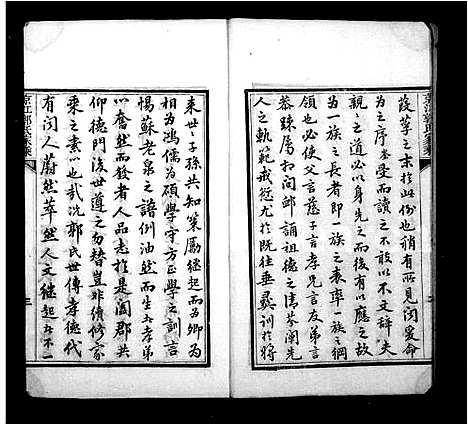 葭莩之末於此例也稍有所見因爰命
為之序奎受而讀之不敢以不文辭夫
親之道必以身先之而後有以應之故
為一族之長者即一族之表率一族之綱
領也必使父言慈子言孝兄言友弟言
恭踈属扣間鄰誦祖德之清芬闡先
人之軌範戒愆尤於既往垂彝訓於將
來世之子孫共知策勵继起而為卿為
相為鴻儒為碩學守方正學之訓言
惕蘇老泉之譜例油然而生孝弟
以奮然而發者人品志於是闔郡共
仰德門後世遵之勿替豈非續修家
乘之素心也哉况郭氏世傳孝德代
有闻人蔚然萃然人文继起不一